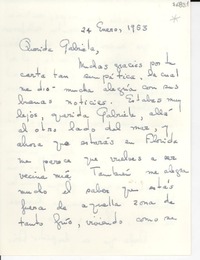 24 Enero, 1953
Querida Gabriela,
Muchas gracias por tu
carta tan simpática, la cual
me dio mucha alegría con sus
buenas noticias. Estabas muy
lejos, querida Gabriela, allá
al otro lado del mar, y
ahora que estarás en Florida
me parece que vuelves a ser
vecina mía. También me alegra
mucho el saber que estás
fuera de aquella zona de
tanto frío, viviendo como se